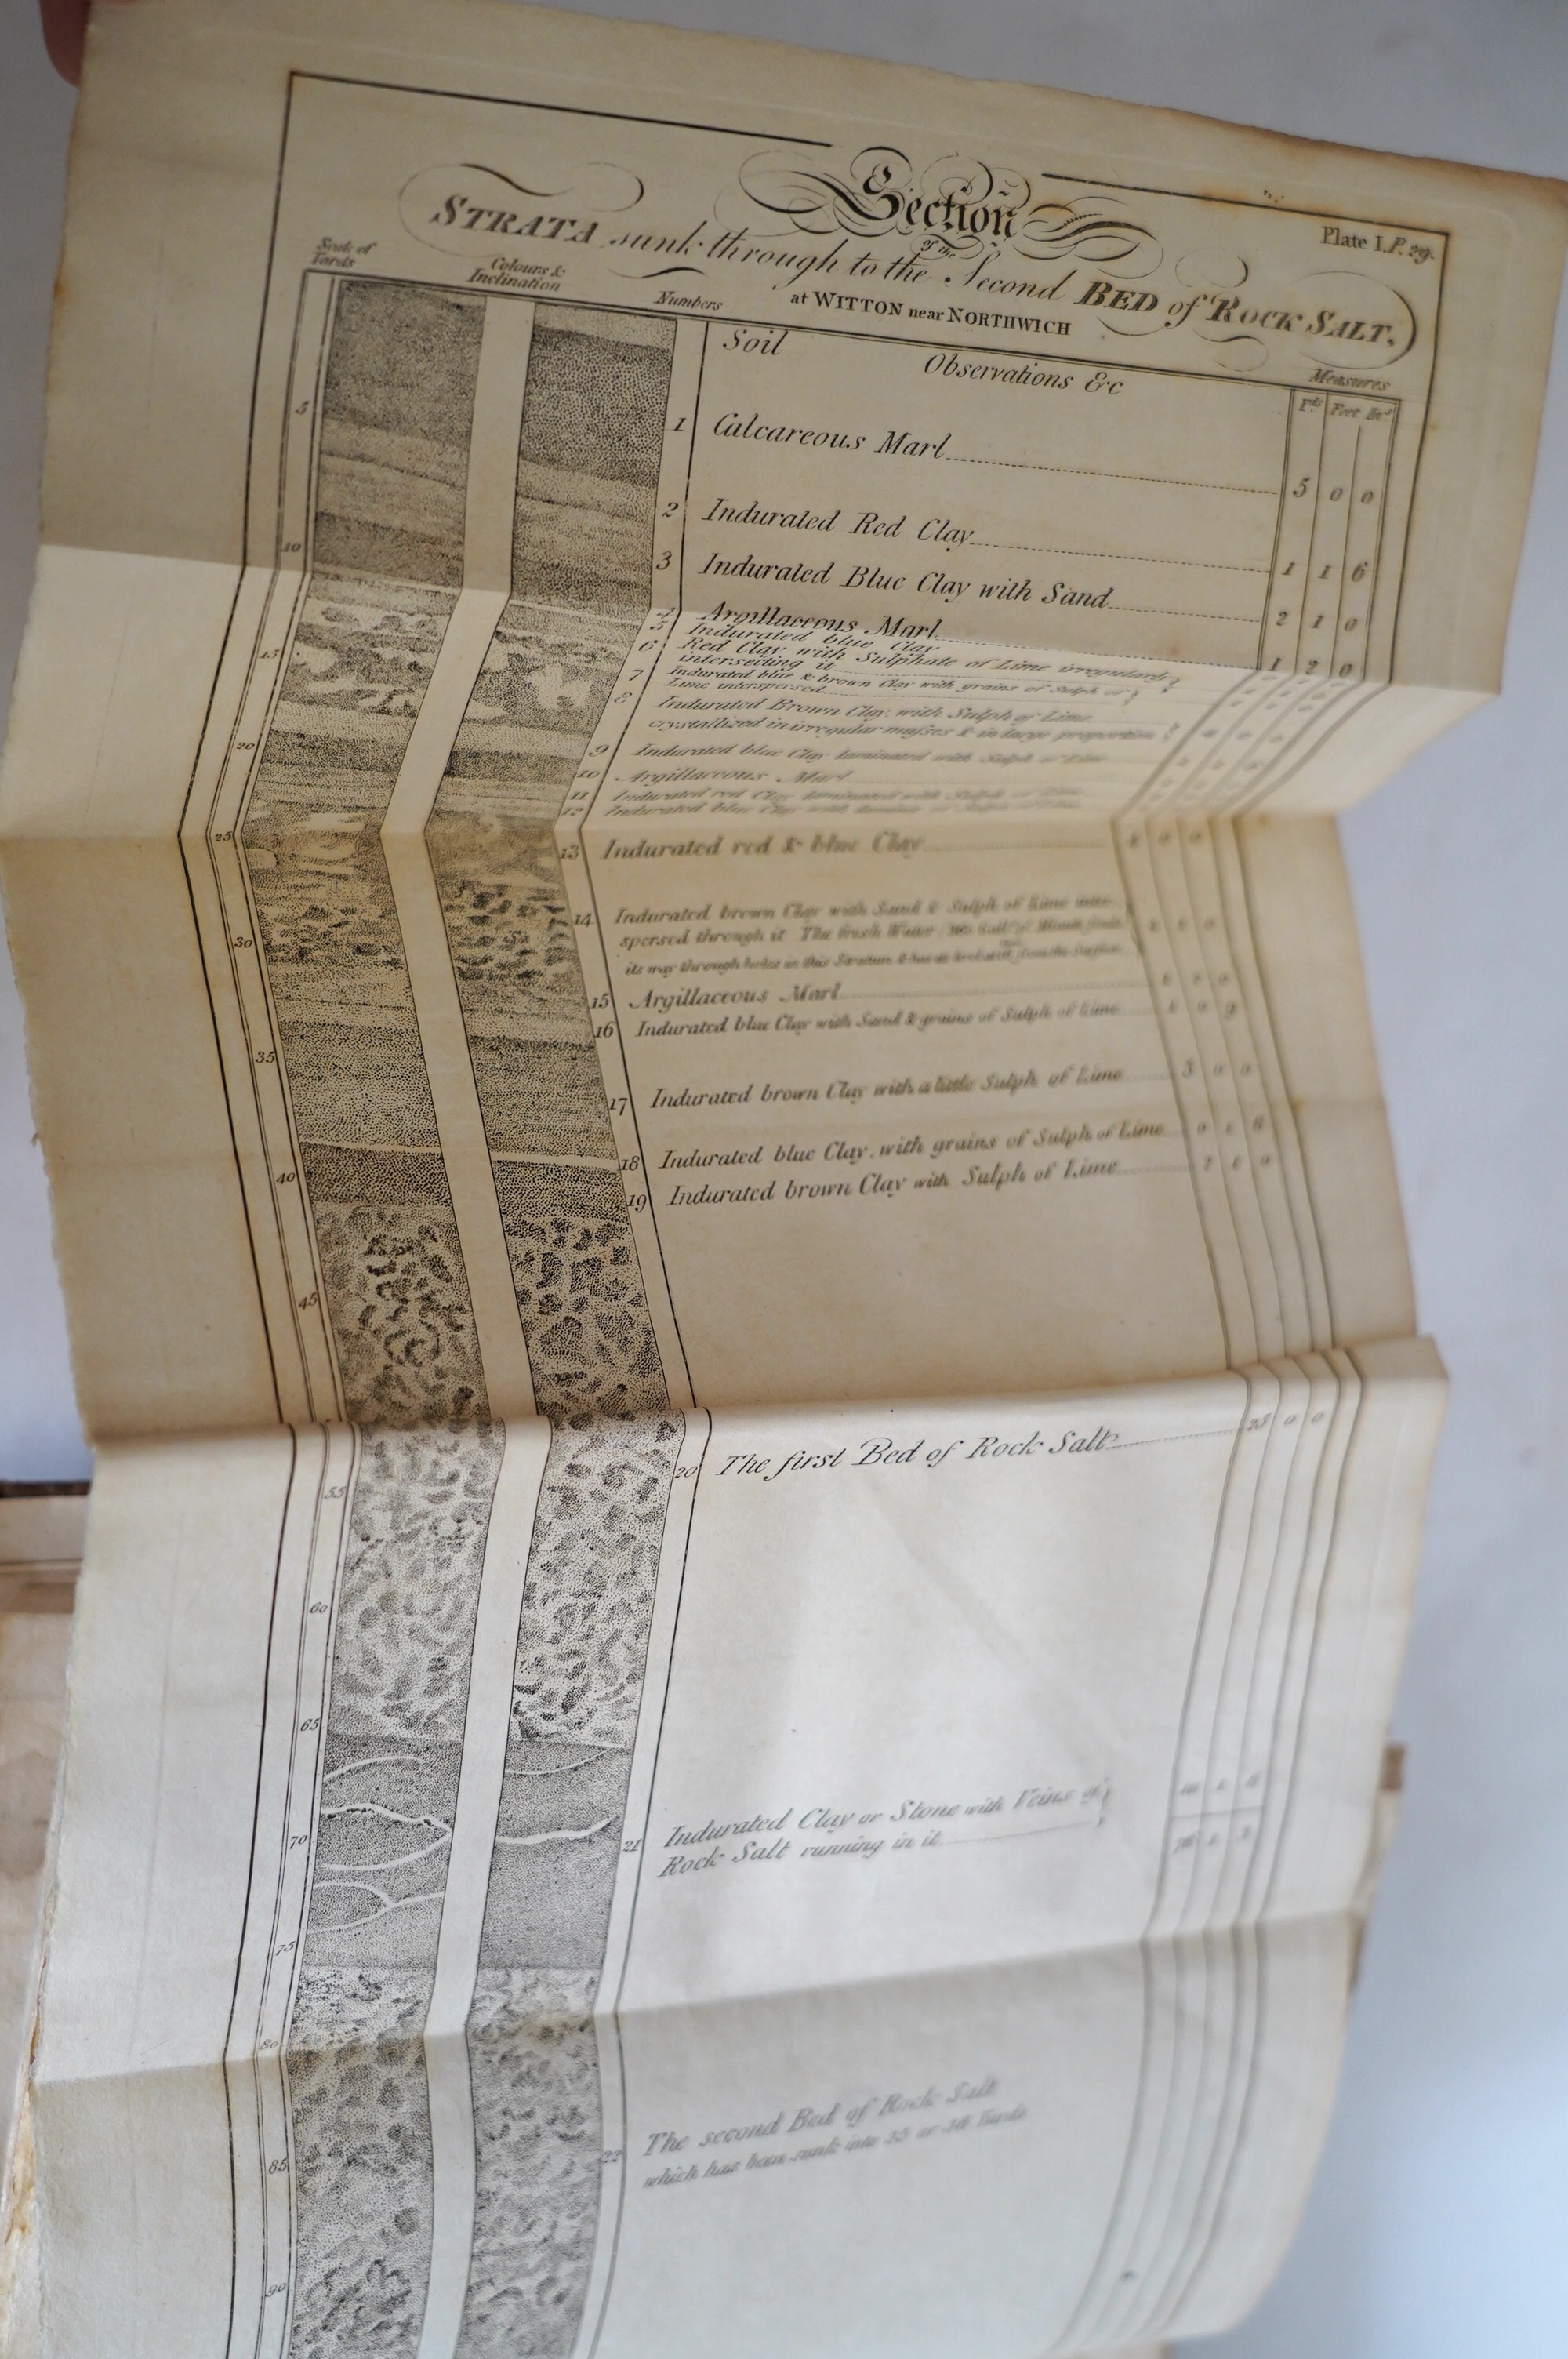 Plate I. P. 29.
Section
of the
STRATA sunk through to the Second BED of ROCK SALT,
at WITTON near NORTHWICH
Scale of Yards
Colours & Inclination
Numbers
Observations &c
Measures
Yds Feet Ins
Soil
1 Calcareous Marl 5 0 0
2 Indurated Red Clay 1 1 6
3 Indurated Blue Clay with Sand 2 1 0
4 Argillaceous Marl 1 2 0
5 Indurated blue Clay
6 Red Clay with Sulphate of Lime irregularly
intersecting it
7 Indurated blue & brown Clay with grains of Sulph of
Lime interspersed
8 Indurated Brown Clay, with Sulph of Lime
crystallized in irregular masses & in large proportion
9 Indurated blue Clay laminated with Sulph of Lime
10 Argillaceous Marl
11 Indurated red Clay laminated with Sulph of Lime
12 Indurated blue Clay with
13 Indurated red & blue Clay
14 Indurated brown Clay with Sand & Sulph of Lime inter
spersed through it. The fresh Water
its way through holes in this Stratum & from the Surface
15 Argillaceous Marl
16 Indurated blue Clay with Sand & grains of Sulph of Lime
17 Indurated brown Clay with a little Sulph of Lime 5 0 0
18 Indurated blue Clay with grains of Sulph of Lime
19 Indurated brown Clay with Sulph of Lime
20 The first Bed of Rock Salt 25 0 0
21 Indurated Clay or Stone with Veins of
Rock Salt running in it
22 The second Bed of Rock Salt
which has been sunk into 35 or 36 Yards
5
10
15
20
25
30
35
40
45
55
60
65
70
75
80
85
90